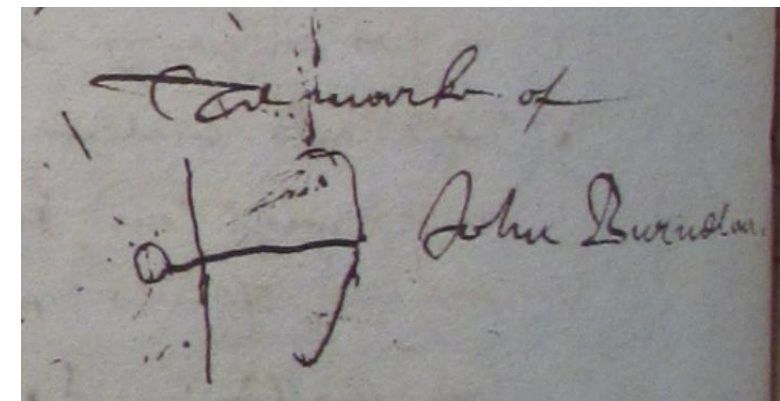 The marke of
John Burndon